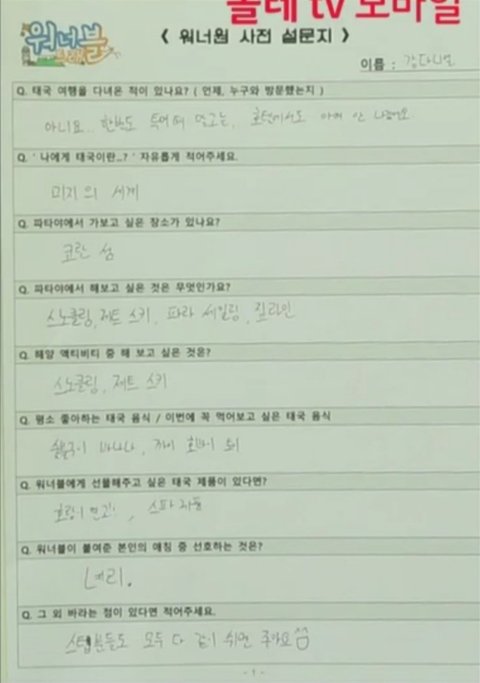 올레 tv 모바일
워너블
트래블
《 워너원 사전 설문지 》
이름 : 강다니엘
Q. 태국 여행을 다녀온 적이 있나요? ( 언제, 누구와 방문했는지 )
아니요.. 한번도
Q. ' 나에게 태국이란..? ' 자유롭게 적어주세요.
미지의 세계
Q. 파타야에서 가보고 싶은 장소가 있나요?
코란 섬
Q. 파타야에서 해보고 싶은 것은 무엇인가요?
스노쿨링, 제트 스키, 파라 세일링, 짚라인
Q. 해양 액티비티 중 해 보고 싶은 것은?
스노쿨링, 제트 스키
Q. 평소 좋아하는 태국 음식 / 이번에 꼭 먹어보고 싶은 태국 음식
바나나,
Q. 워너블에게 선물해주고 싶은 태국 제품이 있다면?
호랑이 연고, 스파 제품
Q. 워너블이 붙여준 본인의 애칭 중 선호하는 것은?
녤리.
Q. 그 외 바라는 점이 있다면 적어주세요.
스텝분들도 모두 다 같이 쉬면 좋아요
- 1 -